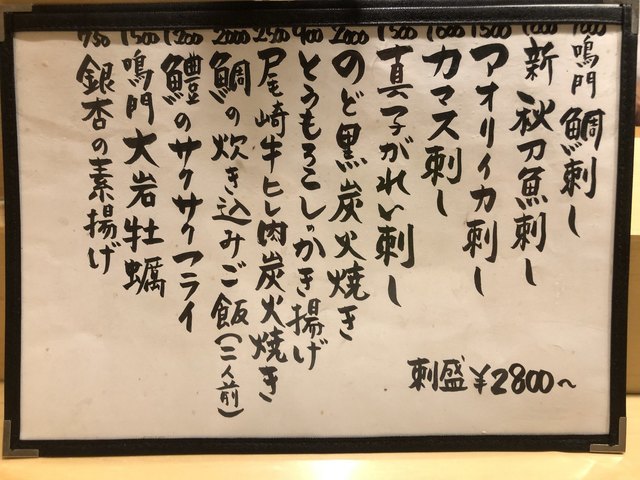 鳴門鯛刺し
新秋刀魚刺し
アオリイカ刺し 1500
カマス刺し
真子がれい刺し 1500
のど黒炭火焼き 2000
とうもろこしのかき揚げ 900
尾崎牛ヒレ肉炭火焼き 2500
鯛の炊き込みご飯(二人前) 2000
鱧のサクサクフライ 1200
鳴門大岩牡蠣 1500
銀杏の素揚げ 750
刺盛¥2800〜